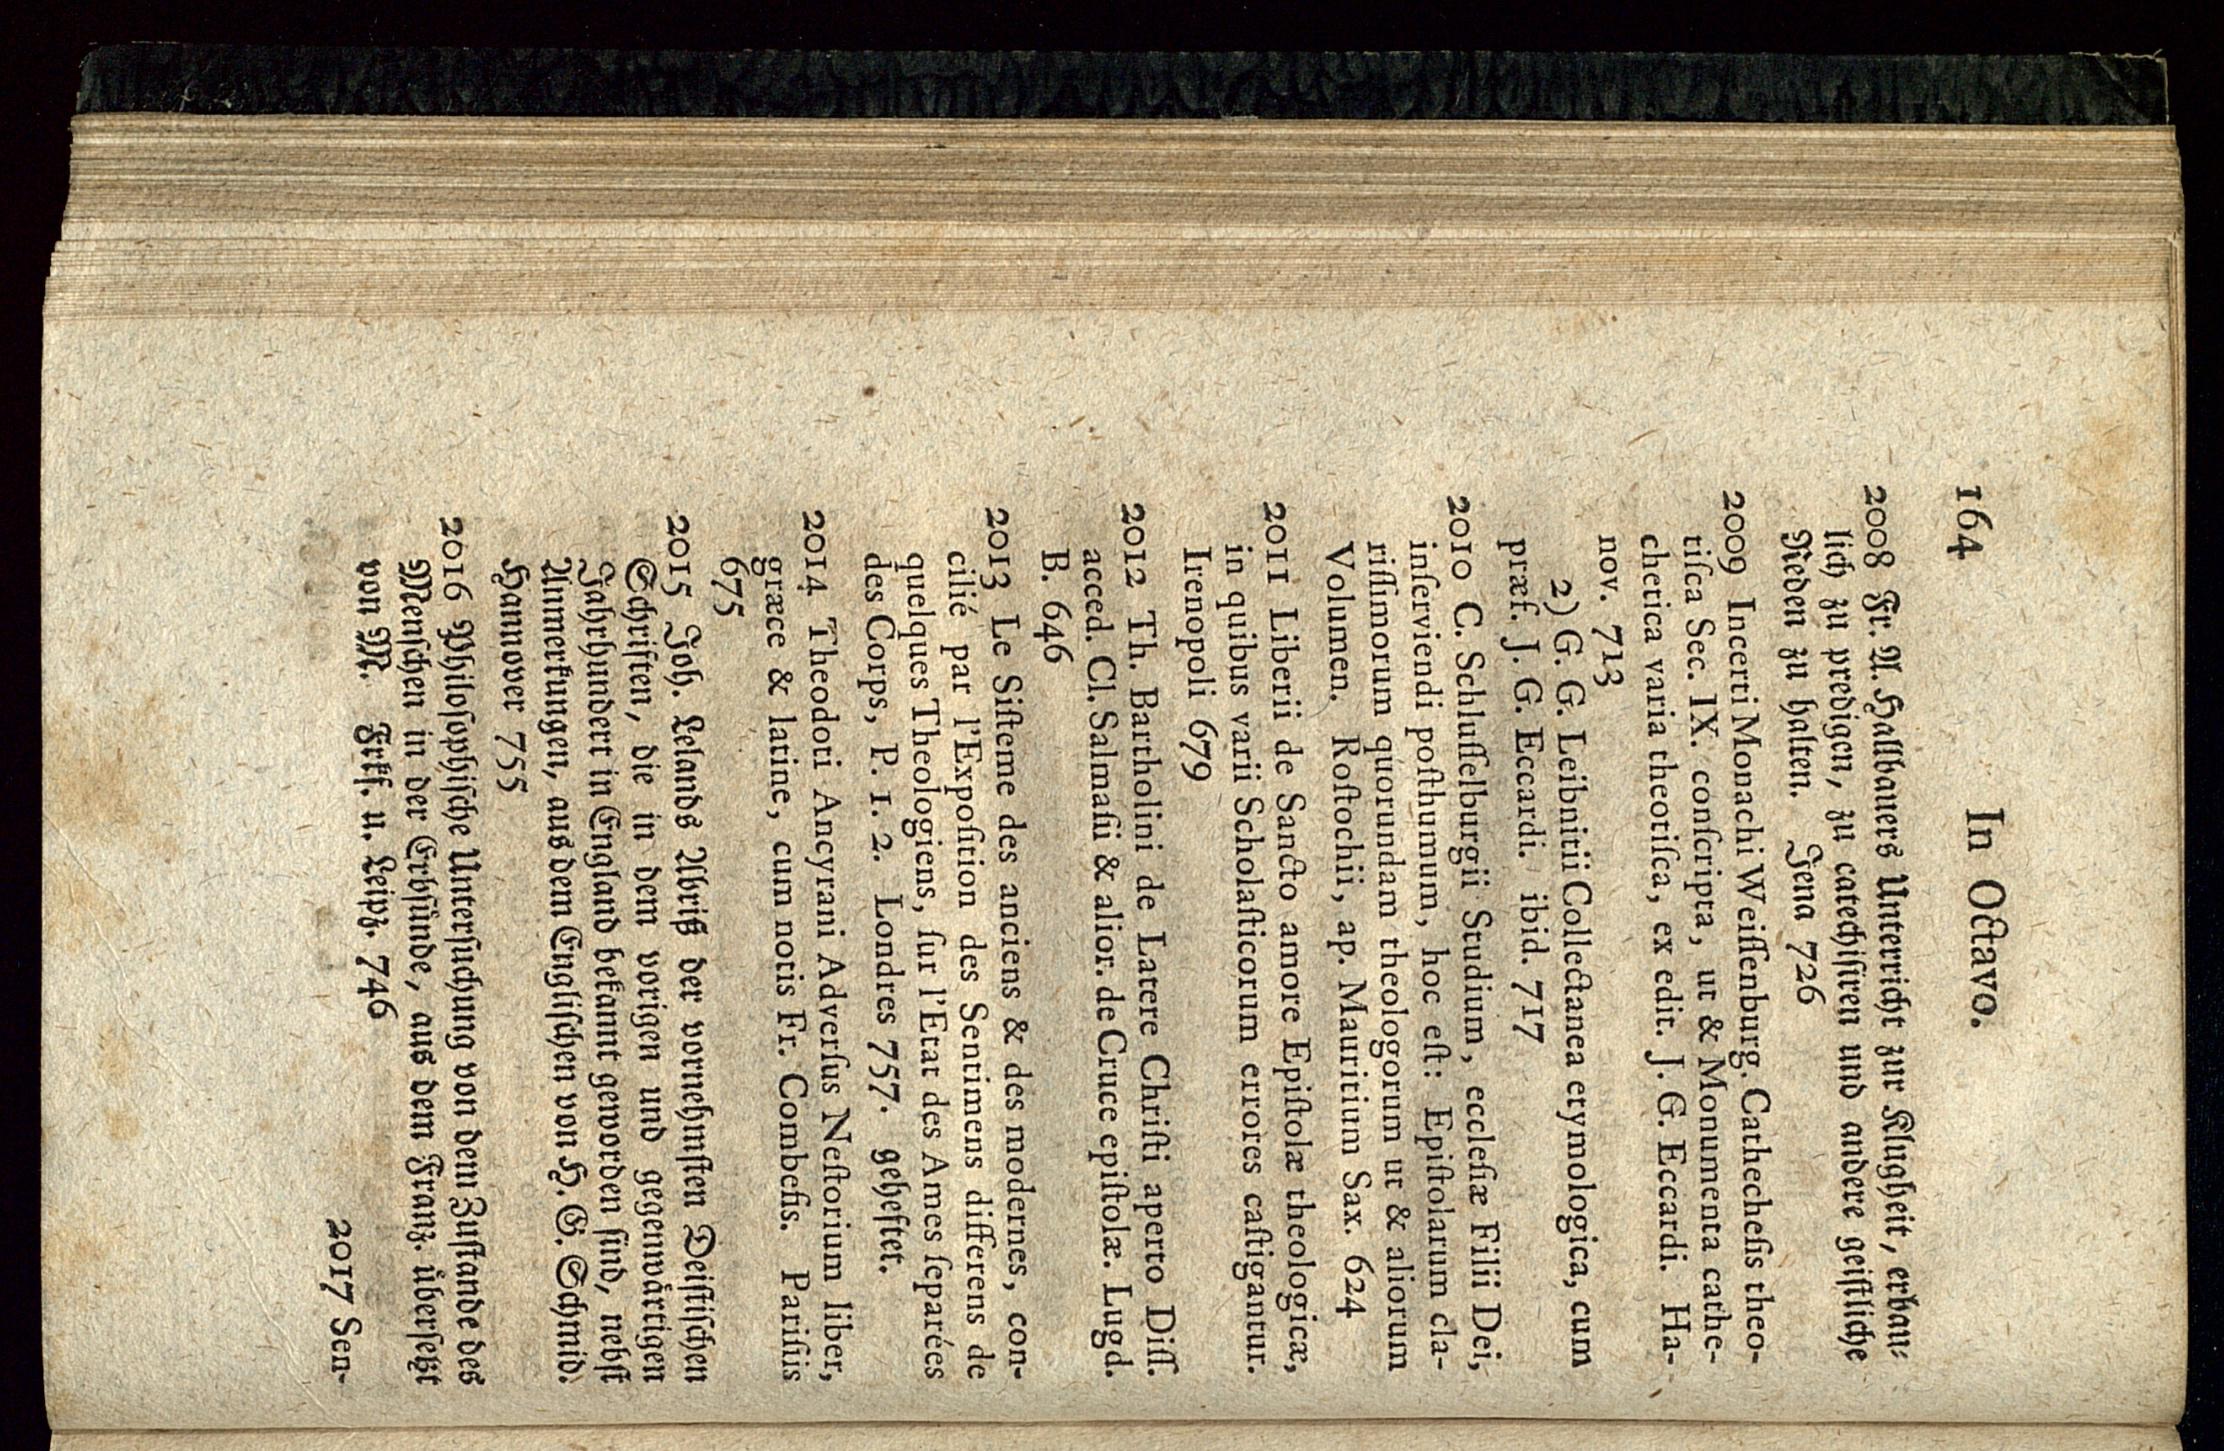 164 In Octavo.
2008 Fr. A. Hallbauers Unterricht zur Klugheit, erbau-
lich zu predigen, zu catechiſiren und andere geiſtliche
Reden zu halten. Jena 726
2009 Incerti Monachi Weiſſenburg. Cathecheſis theo-
tiſca Sec. IX. conſcripta, ut & Monumenta cathe-
chetica varia theotiſca, ex edit. J. G. Eccardi. Ha-
nov. 713
2) G. G. Leibnitii Collectanea etymologica, cum
præf. J. G. Eccardi. ibid. 717
2010 C. Schluſſelburgii Studium, eccleſiæ Filii Dei,
inſerviendi poſthumum, hoc eſt: Epiſtolarum cla-
riſſimorum quorundam theologorum ut & aliorum
Volumen. Roſtochii, ap. Mauritium Sax. 624
2011 Liberii de Sancto amore Epiſtolæ theologicæ,
in quibus varii Scholaſticorum errores caſtigantur.
Irenopoli 679
2012 Th. Bartholini de Latere Chriſti aperto Diſſ.
acced. Cl. Salmaſii & alior. de Cruce epiſtolæ. Lugd.
B. 646
2013 Le Siſteme des anciens & des modernes, con-
cilié par l'Expoſition des Sentimens differens de
quelques Theologiens, ſur l'Etat des Ames ſeparées
des Corps, P. 1. 2. Londres 757. geheftet.
2014 Theodoti Ancyrani Adverſus Neſtorium liber,
græce & latine, cum notis Fr. Combefis. Pariſiis
675
2015 Joh. Lelands Abriß der vornehmſten Deiſtiſchen
Schriften, die in dem vorigen und gegenwårtigen
Jahrhundert in England bekannt geworden ſind, nebſt
Anmerkungen, aus dem Engliſchen von H. G. Schmid.
Hannover 755
2016 Philoſophiſche Unterſuchung von dem Zuſtande des
Menſchen in der Erbſünde, aus dem Franz. überſetzt
von M. Frkf. u. Leipz. 746
2017 Sen-